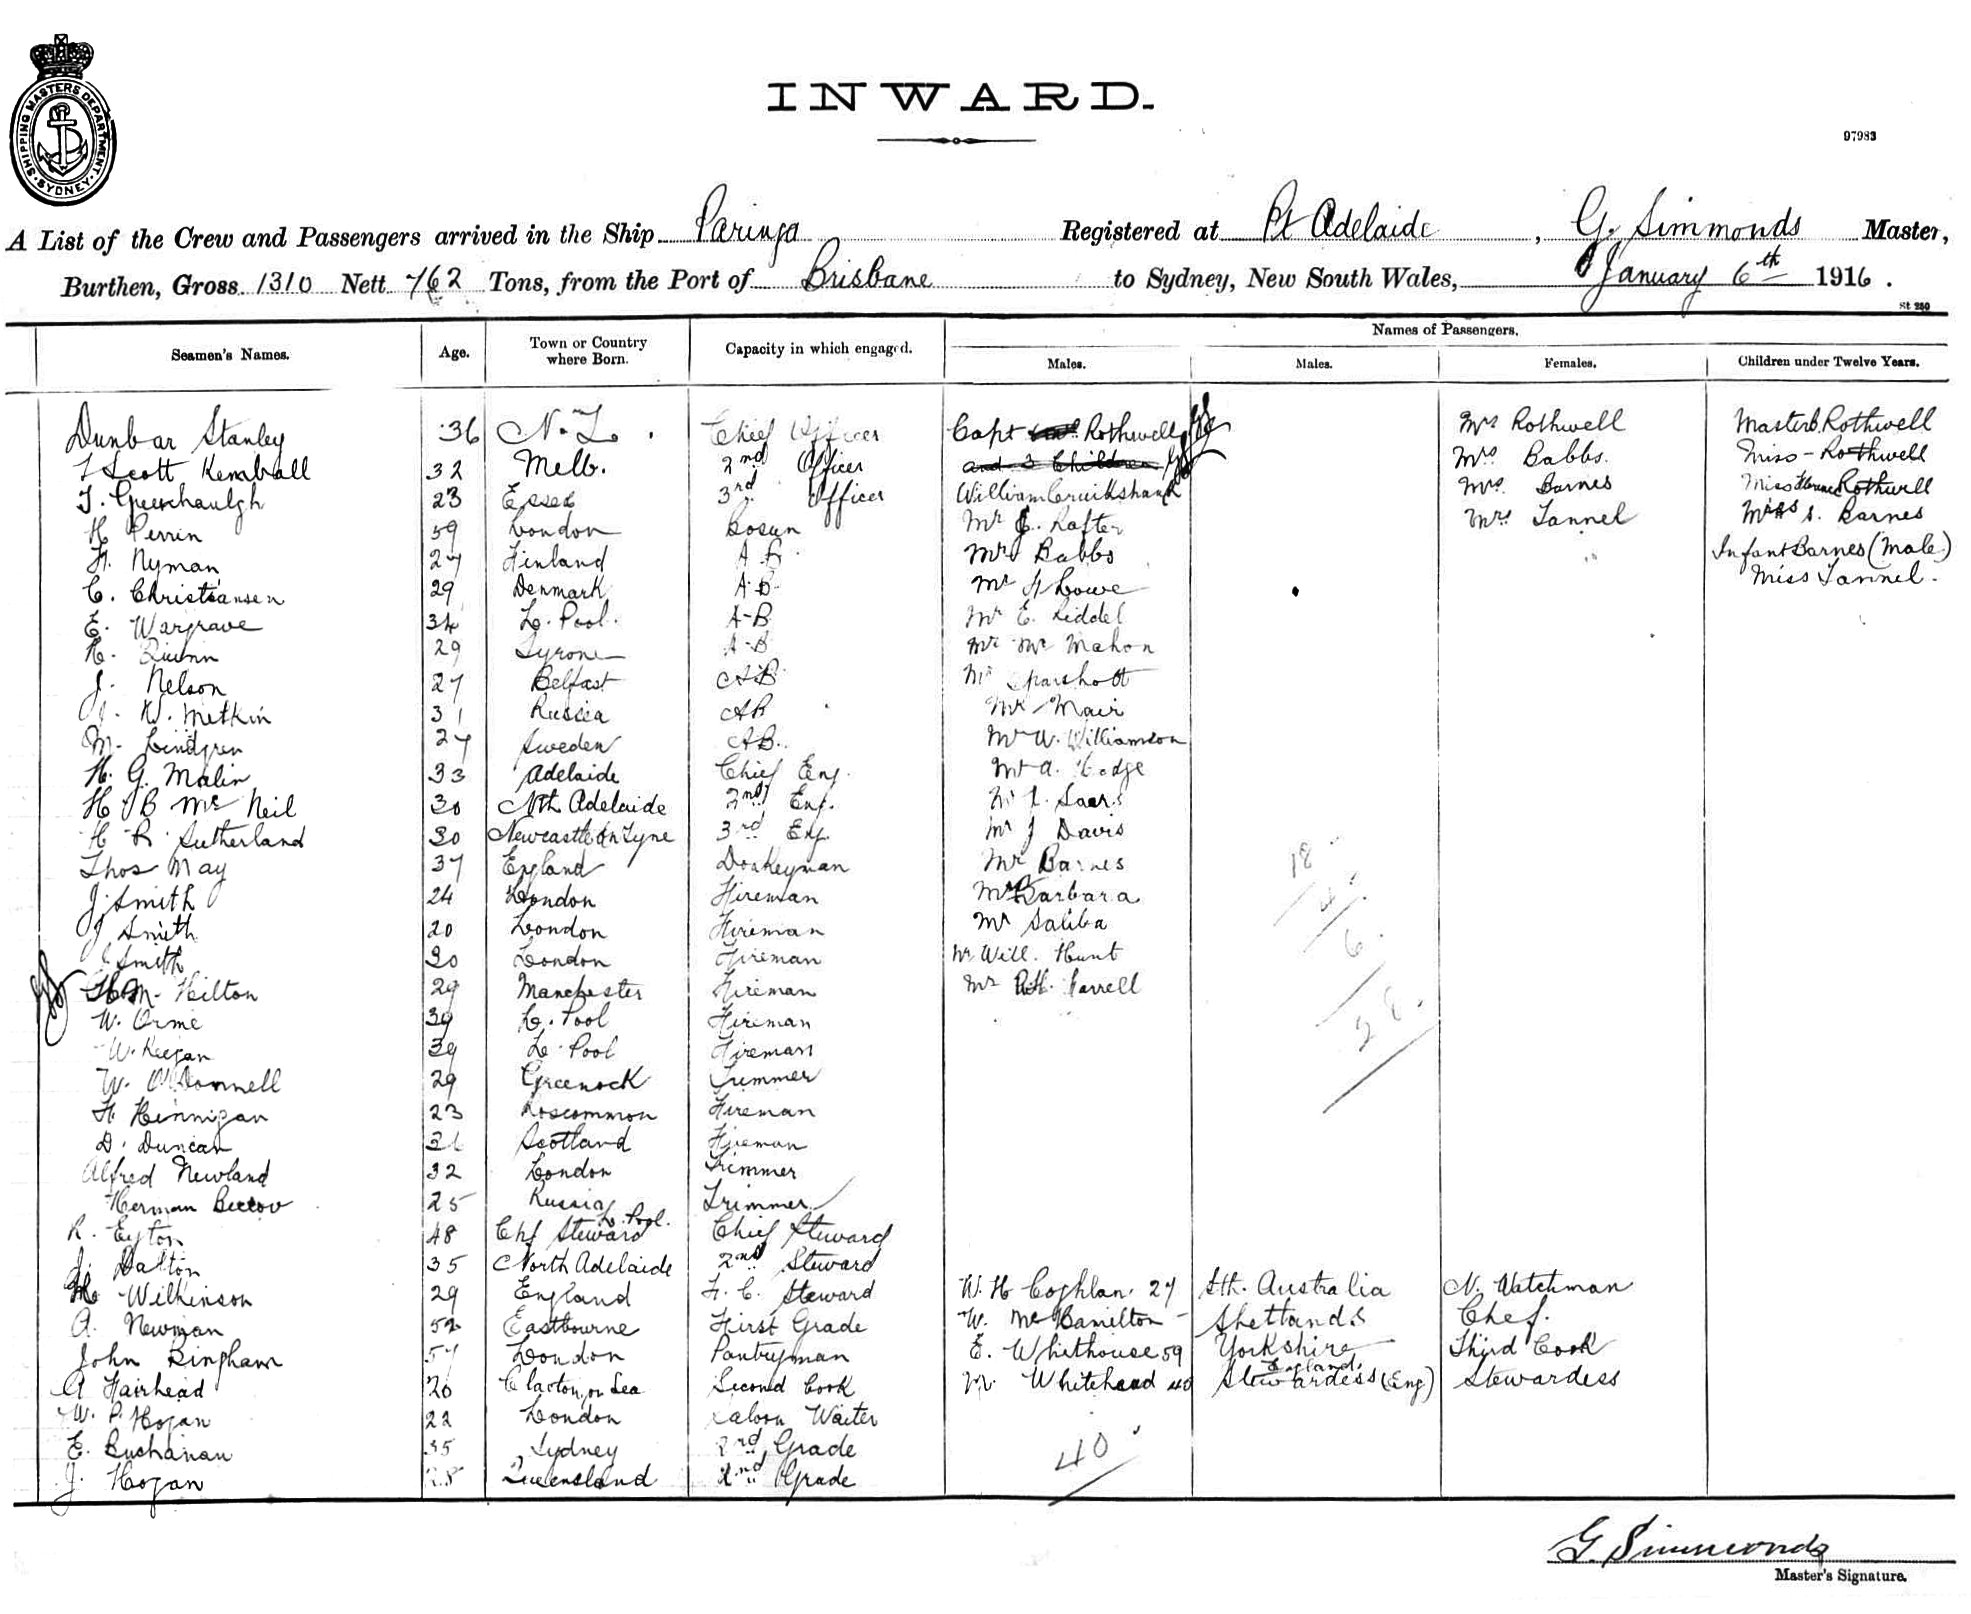 SHIPPING MASTERS DEPARTMENT. SYDNEY.
INWARD.
97983
A List of the Crew and Passengers arrived in the Ship Paringa Registered at Pt Adelaide, G. Simmonds Master,
Burthen, Gross 1310 Nett 762 Tons, from the Port of Brisbane to Sydney, New South Wales, January 6th 1916.
St 250
Names of Passengers.
Seamen's Names. Age. Town or Country where Born. Capacity in which engaged. Males. Males. Females. Children under Twelve Years.
Dunbar Stanley 36 N.Z. Chief Officer Capt Rothwell Mrs Rothwell Master Rothwell
Scott Kemball 32 Melb. 2nd Officer and 3 Children Mrs Babbs. Miss Rothwell
Greenhaulgh 23 Essex 3rd Officer William Cruikshank Mrs Barnes Miss Rothwell
H Perrin 59 London Bosun Mr Rafter Mrs Tannel Barnes
H. Nyman 27 Finland A B Mr Babbs Infant Barnes (Male)
C. Christiansen 29 Denmark A-B Mr Lowe Miss Tannel.
E. Wargrave 34 L. Pool. A-B Mr E. Riddel
H. Quinn 29 Tyrone A-B Mr Mc Mahon
J. Nelson 27 Belfast AB Mr Sparshott
W. Metkin 31 Russia AB Mr Mair
M. Lindgren 27 Sweden AB. Mr W. Williamson
H. G. Malin 33 Adelaide Chief Eng. Mr A. Hodge
H B Mc Neil 30 Nth Adelaide 2nd Eng. Saars
H R Sutherland 30 Newcastle On Tyne 3rd Eng. Mr J Davis
Thos May 37 England Donkeyman Mr Barnes 18
J. Smith 24 London Fireman Mr Barbara 4
J Smith 20 London Fireman Mr Saliba 6
J Smith 30 London Fireman Mr Will. Hunt
M. Hilton 29 Manchester Fireman Mr Farrell
W. Orme 39 L. Pool Fireman 28
W. Keegan 39 L. Pool Fireman
W. O'Donnell 29 Greenock Trimmer
H. Hinnigan 23 Roscommon Fireman
D. Duncan Scotland Fireman
Alfred Newland 32 London Trimmer
Herman 25 Russia Trimmer
R. Eyton 48 Chf Steward L. Pool. Chief Steward
J. Dalton 35 North Adelaide 2nd Steward
H Wilkinson 29 England F. C. Steward W. H Coghlan. 27 Sth. Australia N. Watchman
A. Newman 52 Eastbourne First Grade W. Mc Hamilton Shetlands Chef.
John Bingham 57 London Pantryman E. Whithouse 59 Yorkshire England. Third Cook
A Fairhead 26 Clacton on Sea Second Cook M. Whitehead 40 Stewardess (Eng) Stewardess
W. P. Hogan 22 London Saloon Waiter
E. Buchanan 35 Sydney 2nd Grade 40
J. Hogan 28 Queensland 2nd Grade
G. Simmonds
Master's Signature.